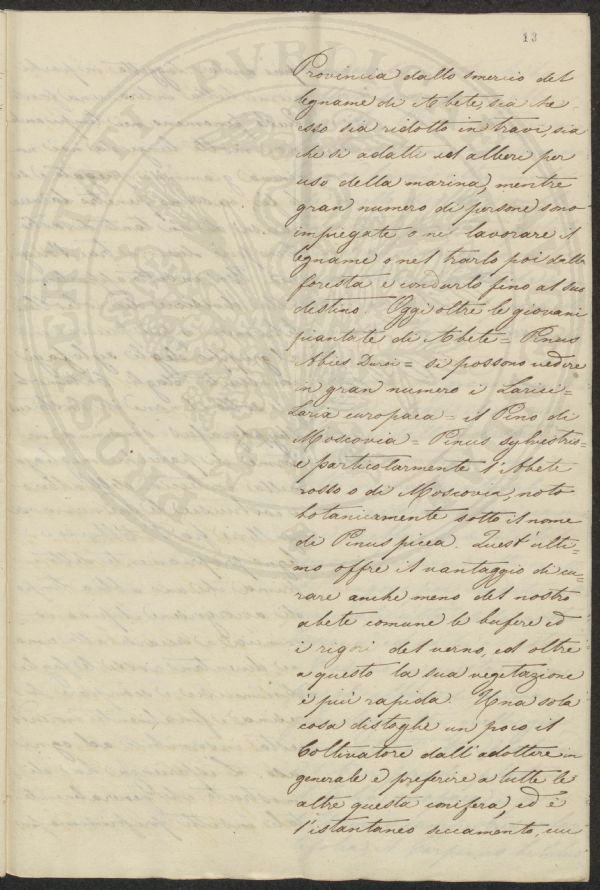 13
Provincia dallo smercio del
legname di Abete, sia che
esso sia ridotto in travi, sia
che si adatti ad alberi per
uso della marina, mentre
gran numero di persone sono
impiegate o nel lavorare il
legname o nel trarlo poi dalla
foresta e condurlo fino al suo
destino. Oggi oltre le giovani
piantate di Abete = Pinus
Abies Duroi = si possono vedere
in gran numero i Larici =
Larix europaea = il Pino di
Moscovia = Pinus sylvestris =
e particolarmente l'Abete
rosso o di Moscovia, noto
botanicamente sotto il nome
di Pinus picea. Quest'ulti=
mo offre il vantaggio di cu=
rare anche meno del nostro
abete comune le bufere ed
i rigori del verno, ed oltre
a questo la sua vegetazione
è più rapida. Una sola
cosa distoglie un poco il
Coltivatore dall'adottare in
generale e preferire a tutte le
altre questa conifera, ed è
l'istantaneo seccamento, cui